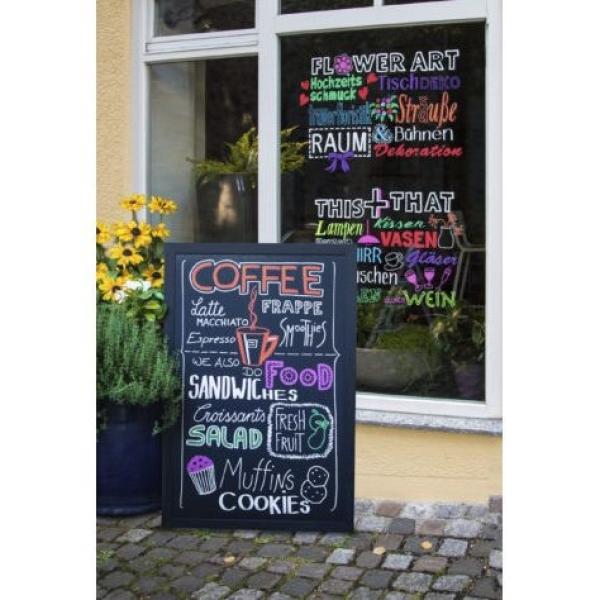 FLOWER ART
Hochzeits
schmuck
TischDEKO
Sträuße
RAUM
& Bühnen
Dekoration
THIS + THAT
Lampen
Kissen
VASEN
Gläser
WEIN
COFFEE
Latte
MACCHIATO
FRAPPE
Espresso
SMOOTHIES
WE ALSO
DO
FOOD
SANDWICHES
Croissants
SALAD
FRESH
FRUIT
Muffins
COOKIES